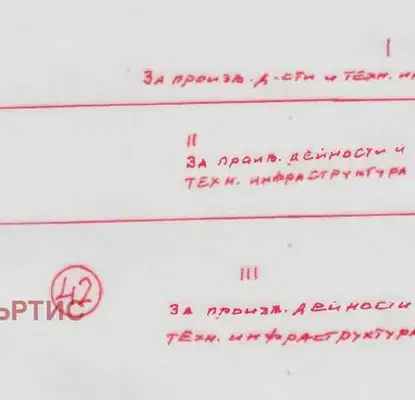 I
За произв. д-сти и техн. ин
II
За произв. дейности и
техн. инфраструктура
III
42
ьРТИС
За произв. дейности
техн. инфраструктура